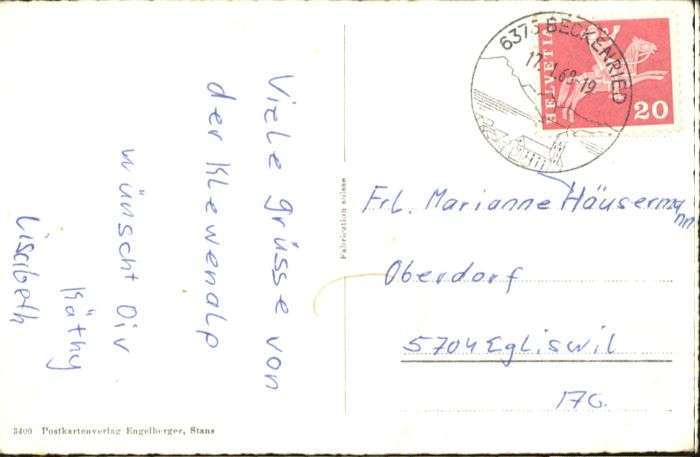 Viele grüsse von
der Klewenalp
wünscht Dir
Käthy
Lisebeth
Fabrication suisse
6375 BECKENRIED
HELVETIA
20
Frl. Marianne Häusermann
Oberdorf
5704 Egliswil
3400 Postkartenverlag Engelberger, Stans